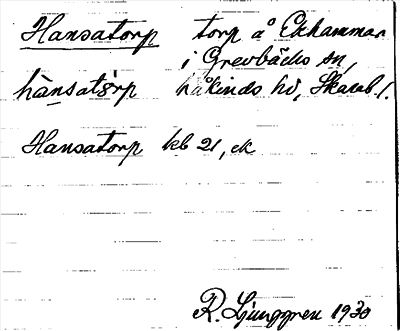 Hansatorp torp å Ekhammar
i Grevbäcks sn,
hànsatårp Kåkinds hd, Skarab. l.
Hansatorp kb 21, ek
R. Ljunggren 1930